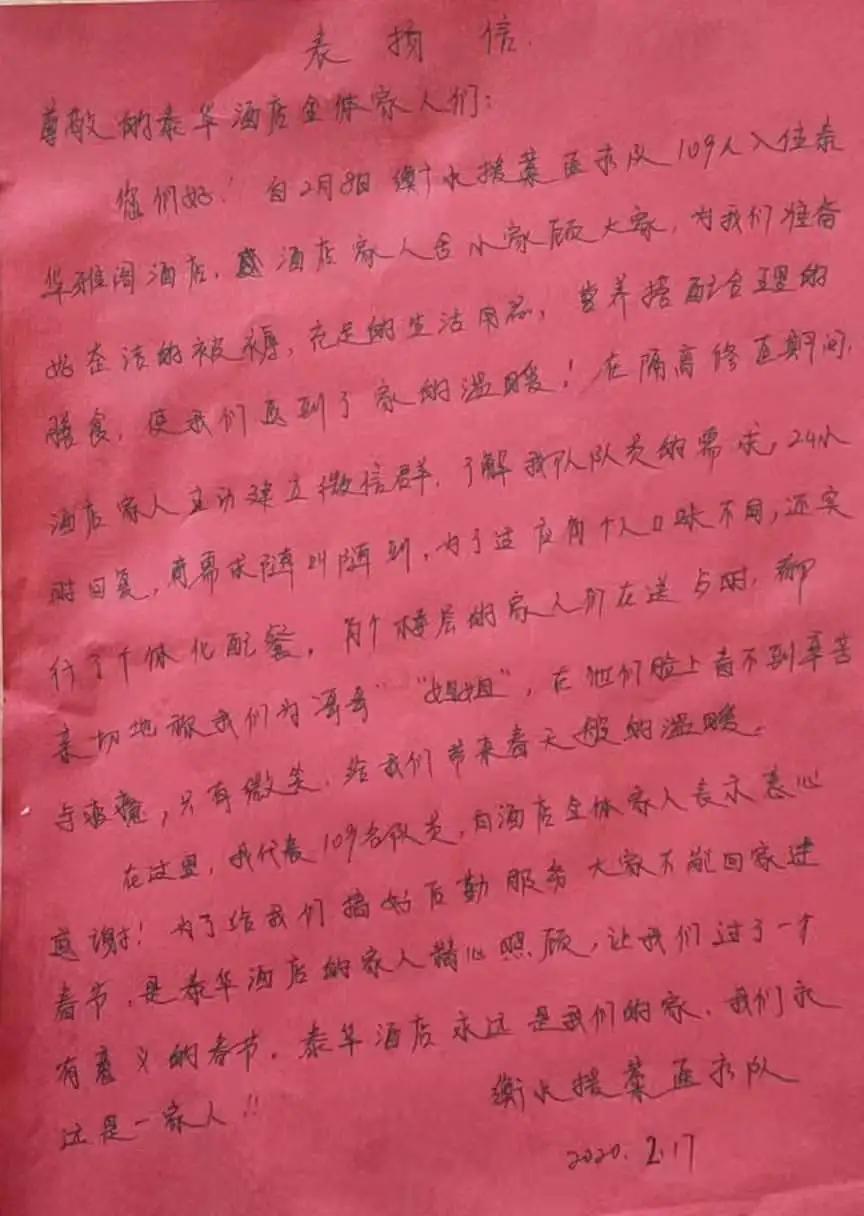 表扬信
尊敬的泰华酒店全体家人们：
您们好！自2月8日衡水援藁医疗队109人入住泰
华雅阁酒店，酒店家人舍小家顾大家，为我们准备
好整洁的被褥，充足的生活用品，营养搭配合理的
膳食，使我们感到了家的温暖！在隔离修正期间，
酒店家人主动建立微信群，了解我队队员的需求，24小
时回复，有需求随叫随到，为了适应每个人口味不同，还实
行了个体化配餐，每个楼层的家人们在送餐时，都
亲切地称我们为“哥哥”“姐姐”，在他们脸上看不到辛苦
与疲惫，只有微笑，给我们带来春天般的温暖。
在这里，我代表109名队员，向酒店全体家人表示衷心
感谢！为了给我们搞好后勤服务大家不能回家过
春节，是泰华酒店的家人精心照顾，让我们过了一个
有意义的春节，泰华酒店永远是我们的家，我们永
远是一家人!!
衡水援藁医疗队
2020.2.17